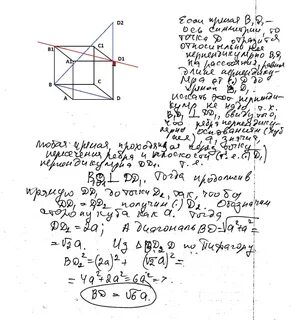 D2
B1
C1
A1
D1
B
C
A
D
Если прямая B₁D₁ –
ось симметрии, то
точка D отразится
относительно нее
перпендикулярно B₁D₁
на расстояние, равное
длине перпендику-
ляра от D до
прямой B₁D₁
Искать этот перпенди-
куляр не надо, т.к.
B₁D₁ ⊥ DD₁, ввиду того,
что ребра перпендику-
лярны основаниям (куб
же), а, значит,
любая прямая, проходящая через точку
пересечения ребра и плоскости (т.е. D₁)
перпендикулярна DD₁ т.е.
B₁D₁ ⊥ DD₁. Тогда продолжив
прямую DD₁ до точки D₂ так, чтобы
DD₁ = D₁D₂ получим D₂. Обозначим
сторону куба как a. Тогда
DD₂ = 2a; А диагональ BD = √a²+a² =
= √2 a. Из △BD₂D по Пифагору
BD₂² = (2a)² + (√2 a)² =
= 4a² + 2a² = 6a² =>
BD = √6 a.